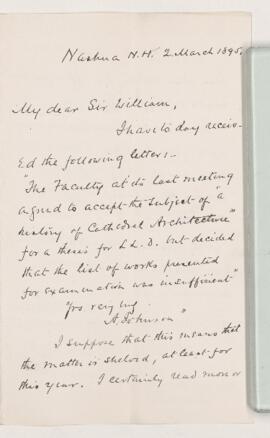 Nashua N.H. 2 March 1895.
My dear Sir William,
I have to day receiv-
Ed the following letter:-
"The Faculty at its last meeting
agreed to accept the subject of "a
history of Cathedral Architecture"
for a thesis for LL.D. but decided
that the list of works presented
for examination was insufficient"
yrs very
A. Johnson"
I suppose that this means that
the matter is shelved, at least for
this year. I certainly read more or